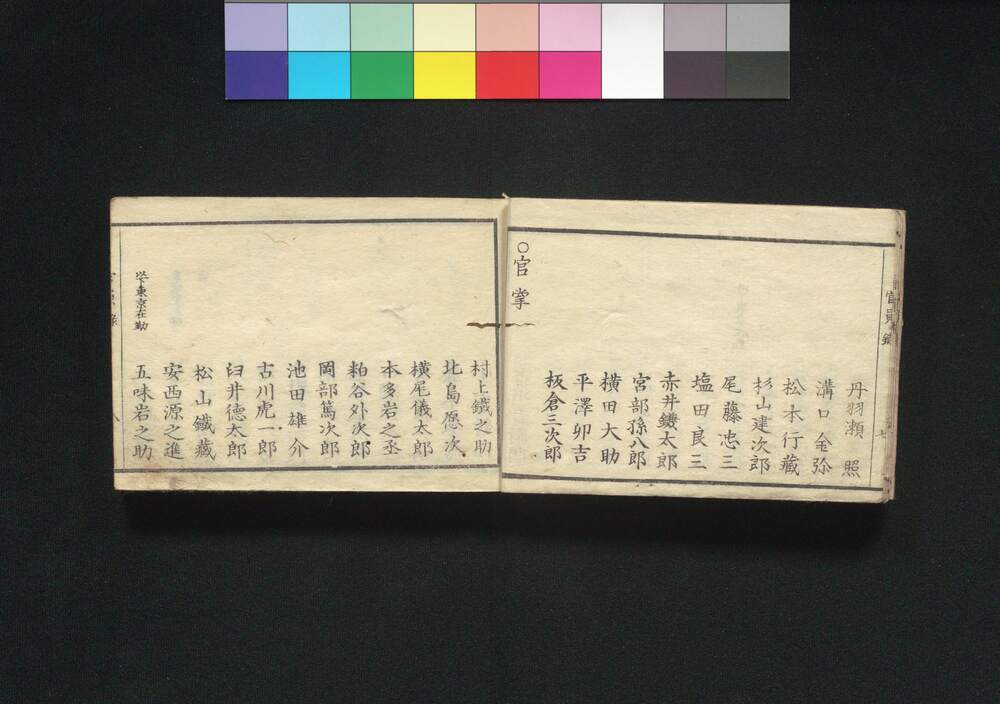 官員錄
七
丹羽瀬 照
溝口金弥
松本行藏
杉山建次郎
尾藤忠三
塩田良三
赤井鐵太郎
宮部孫八郎
横田大助
平澤卯吉
板倉三次郎
○官掌
村上鐵之助
北島愿次
横尾儀太郎
本多岩之丞
粕谷外次郎
岡部篤次郎
池田雄介
古川虎一郎
臼井德太郎
松山鐵藏
安西源之進
以下東京在勤
五味岩之助
八